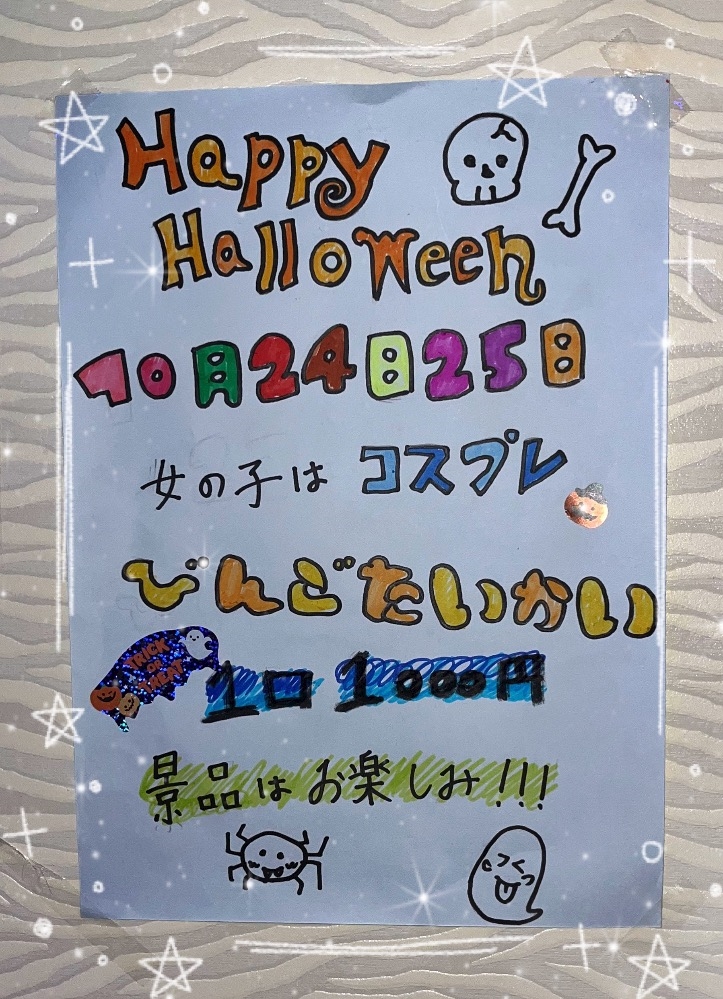 Happy
Halloween
10月24日25日
女の子は コスプレ
びんごたいかい
TRICK
OR
TREAT
1口 1000円
景品はお楽しみ!!!